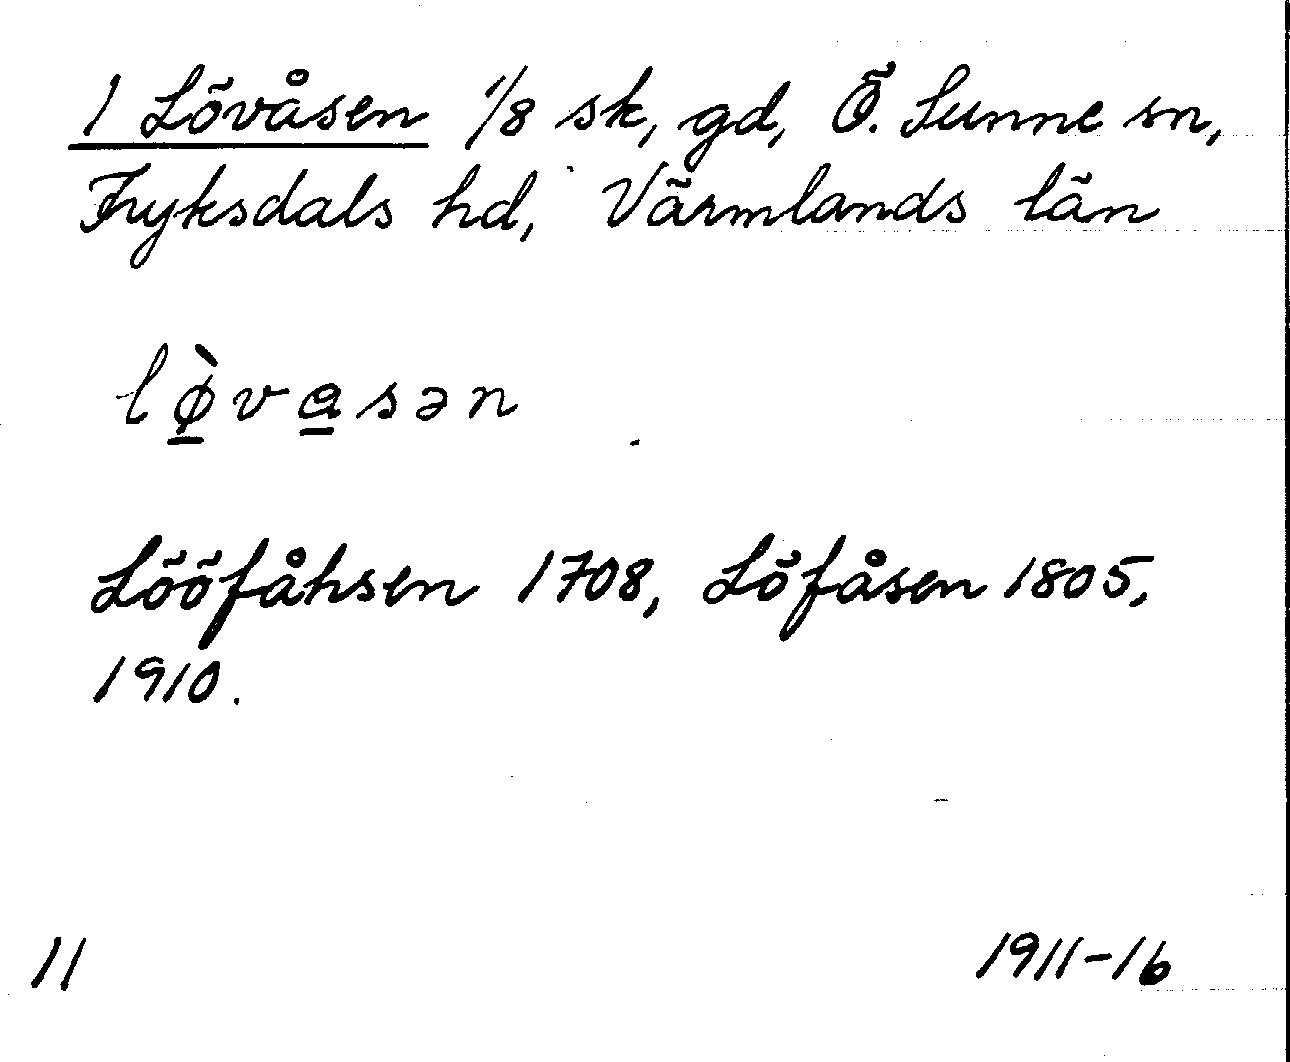 1 Lövåsen 1/8 sk, gd, Ö. Sunne sn,
Fryksdals hd, Värmlands län
lø̠̀va̠sən
Lööfåhsen 1708, Löfåsen 1805,
1910.
11
1911-16